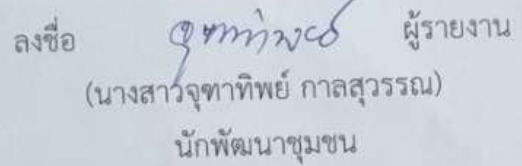 ลงชื่อ จุฑาทิพย์ ผู้รายงาน
(นางสาวจุฑาทิพย์ กาลสุวรรณ)
นักพัฒนาชุมชน